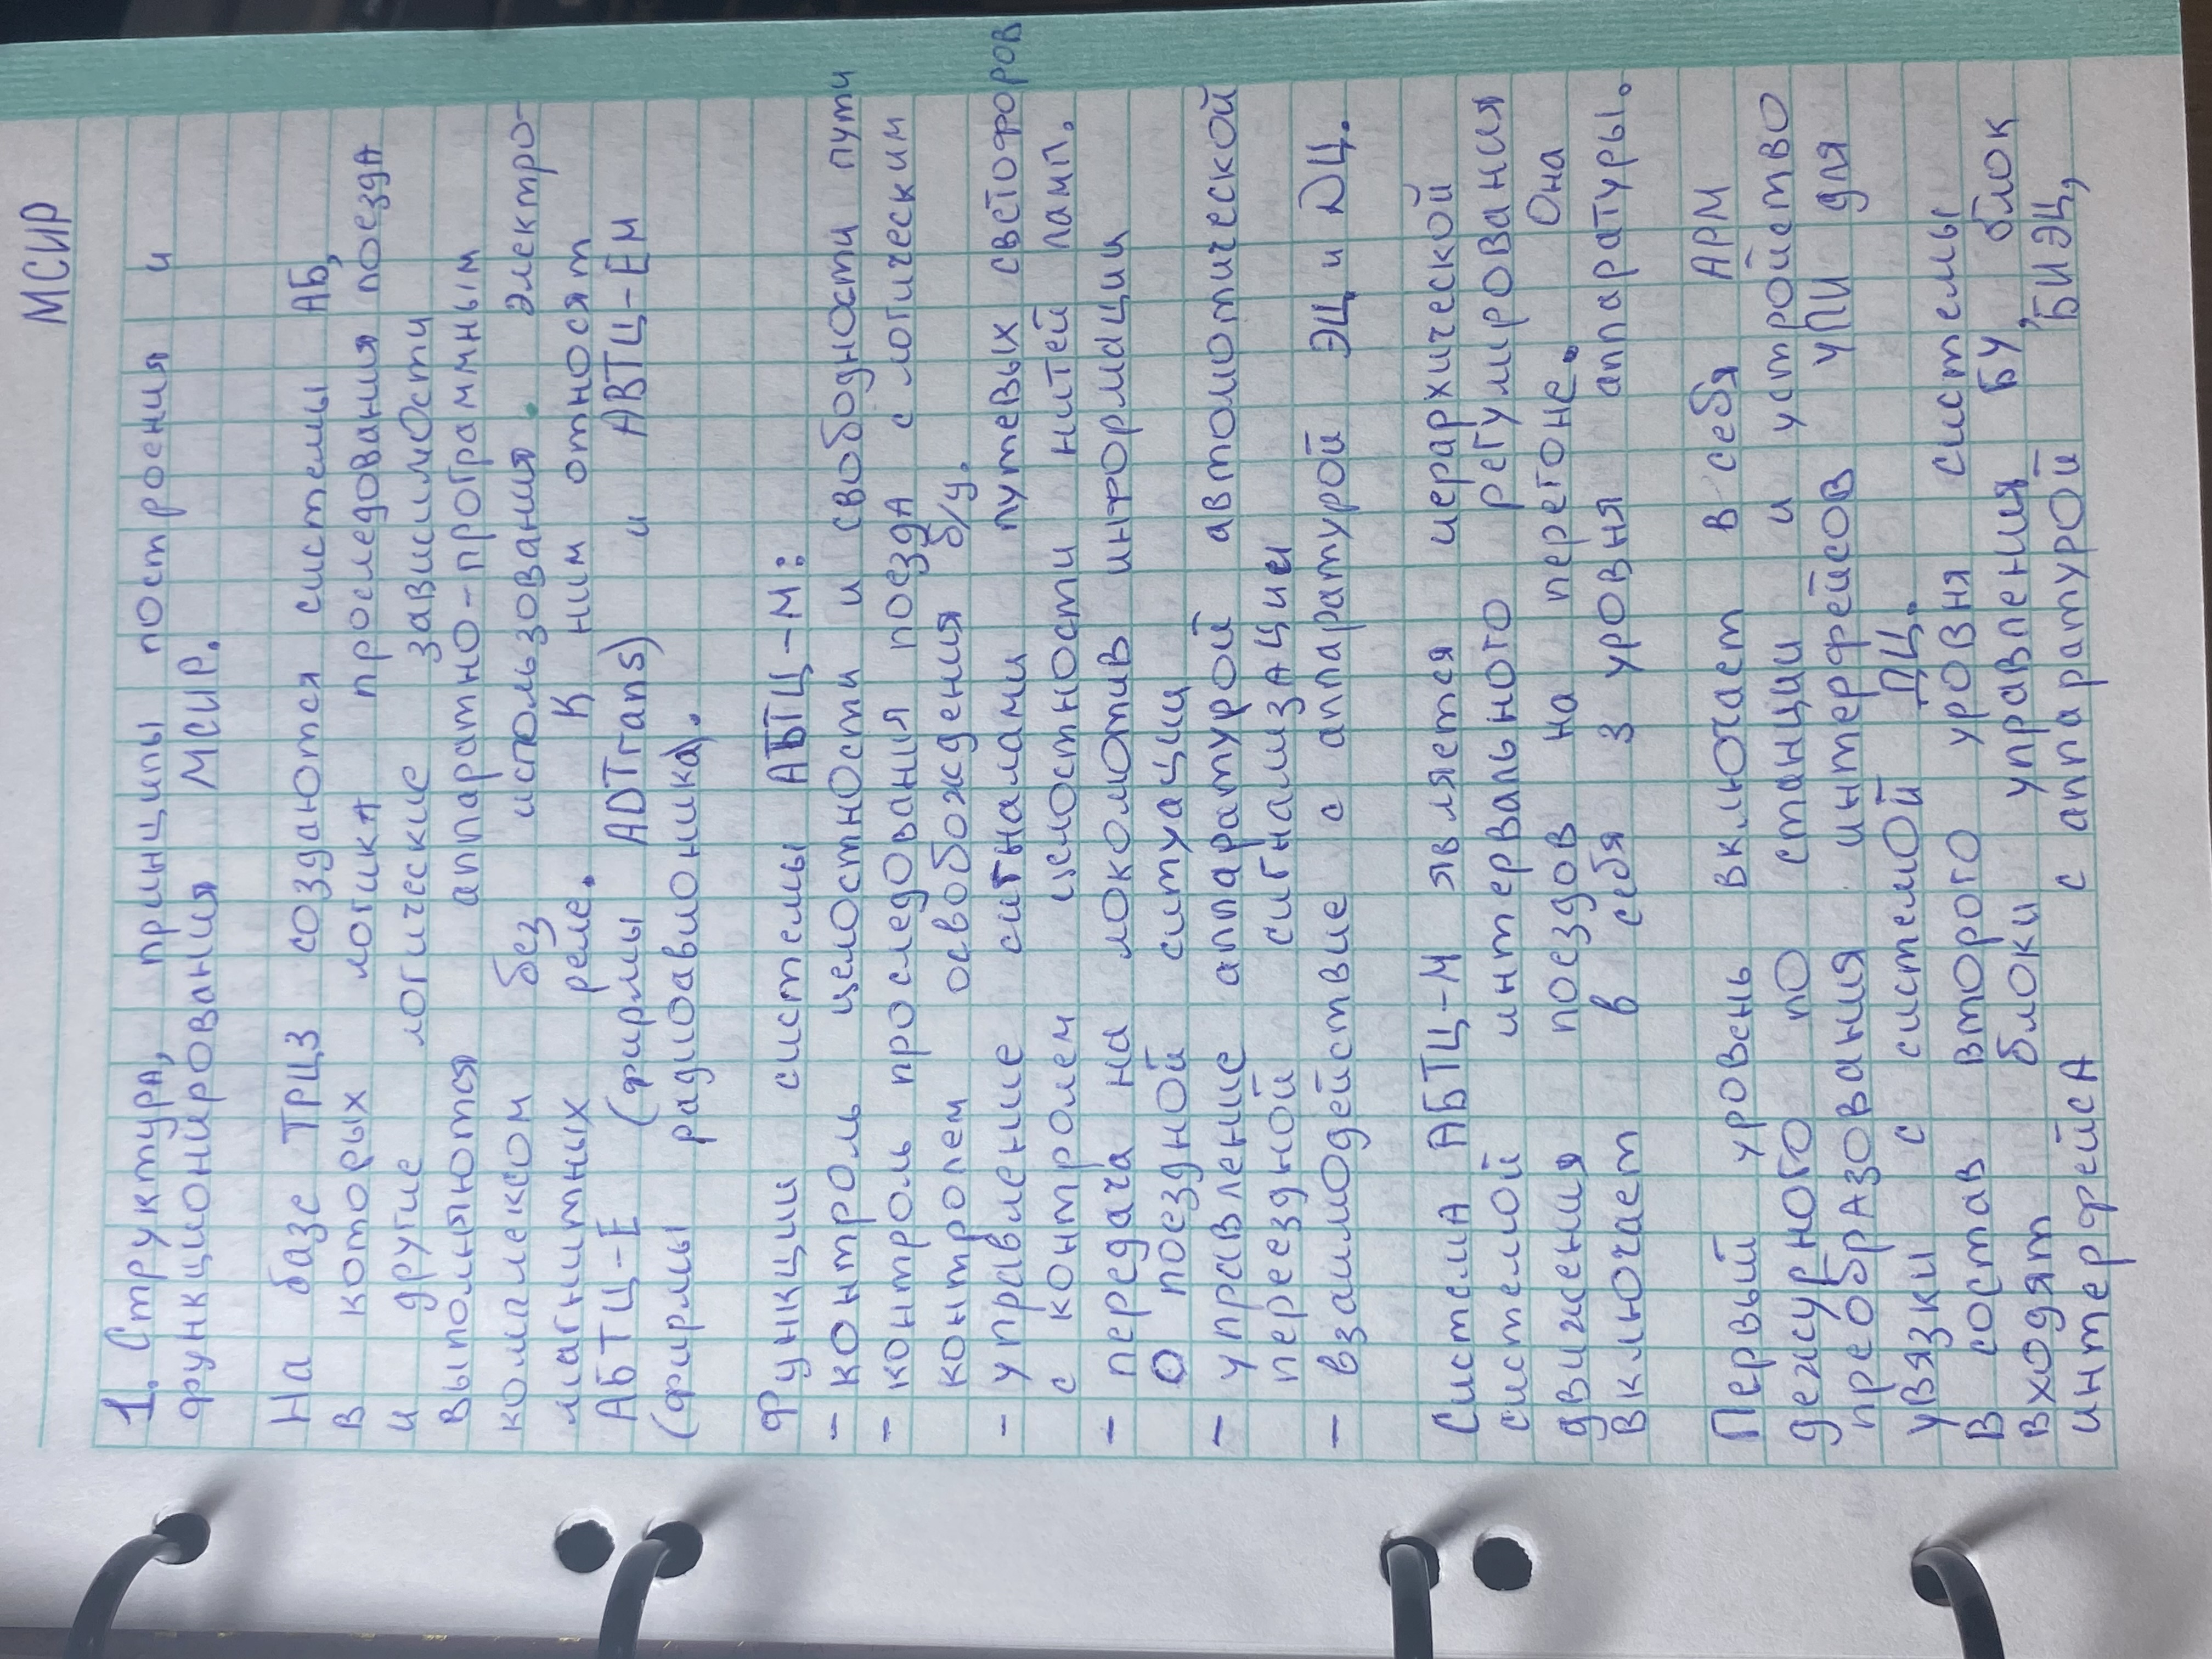 МСИР
1. Структура, принципы построения и
функционирования МСИР.
На базе ТРЦ3 создаются системы АБ,
в которых логика проследования поезда
и другие логические зависимости
выполняются аппаратно-программным
комплексом без использования электро-
магнитных реле. К ним относят
АБТЦ-Е (фирмы ADTrans) и АБТЦ-ЕМ
(фирмы радиоавионика).
Функции системы АБТЦ-М:
- контроль целостности и свободности пути
- контроль проследования поезда с логическим
контролем освобождения б/у.
- управление сигналами путевых светофоров
с контролем целостности нитей ламп.
- передача на локомотив информации
о поездной ситуации
- управление аппаратурой автоматической
переездной сигнализации
- взаимодействие с аппаратурой ЭЦ и ДЦ.
Система АБТЦ-М является иерархической
системой интервального регулирования
движения поездов на перегоне. Она
включает в себя 3 уровня аппаратуры.
Первый уровень включает в себя АРМ
дежурного по станции и устройство
преобразования интерфейсов УПИ для
увязки с системой ДЦ.
В состав второго уровня системы
входят блоки управления БУ, блок
интерфейса с аппаратурой БИЭЦ,